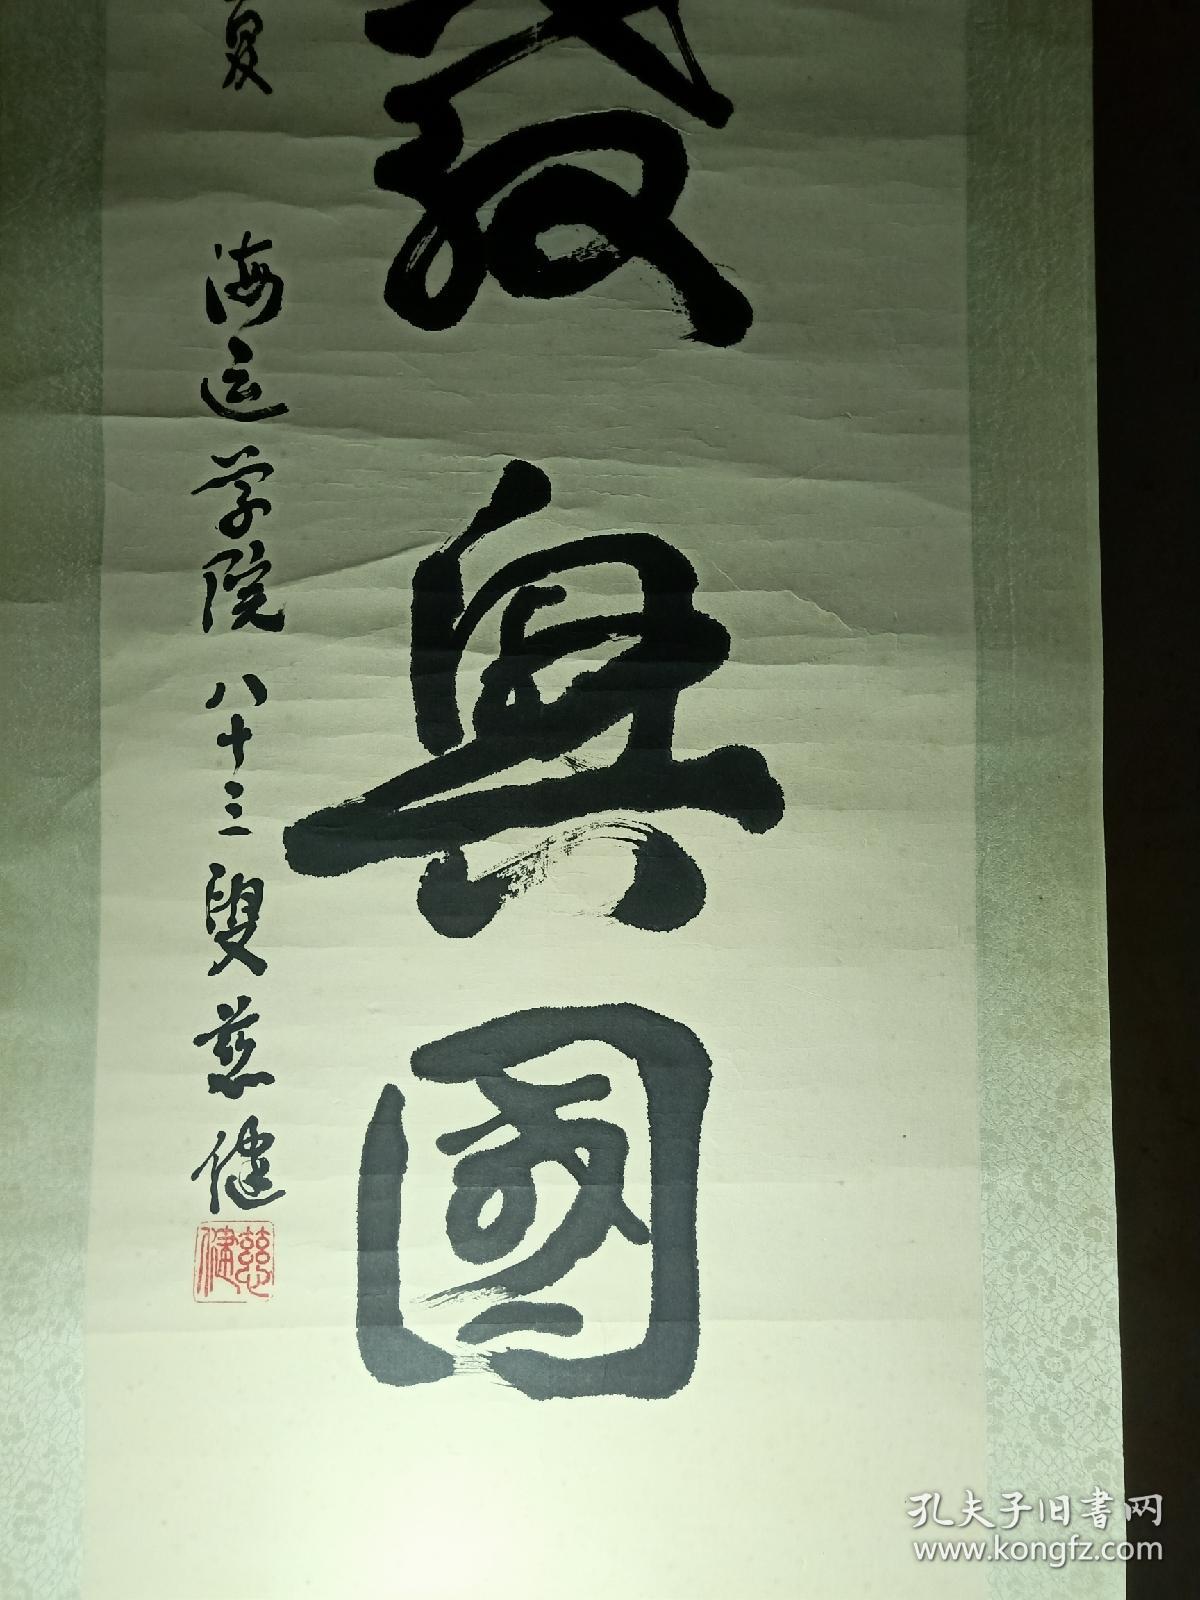 教興國
夏 海运学院八十三叟慈健
慈健
孔夫子旧書网
www.kongfz.com